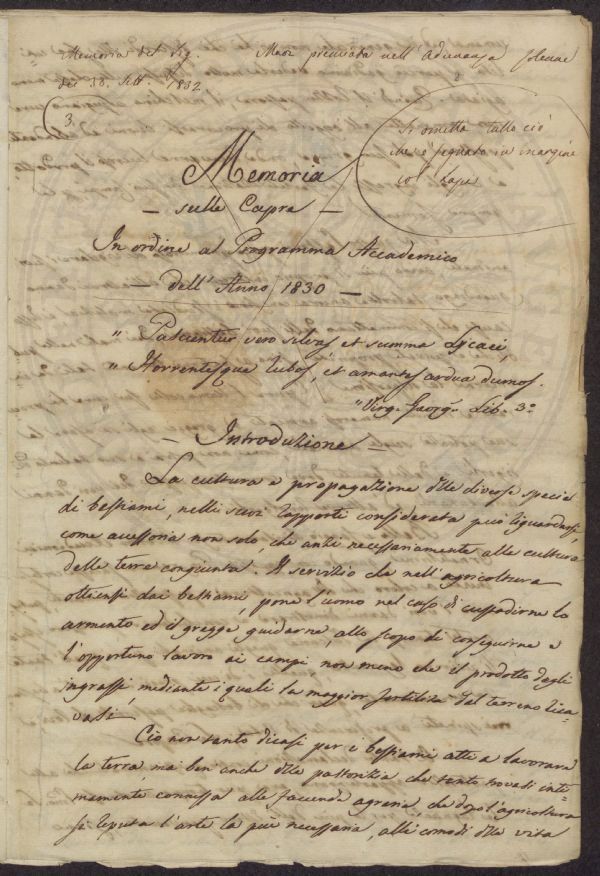 Memoria del Sig. Maoz premiata nell'Adunanza solenne
dei 30. Sett. 1832
3.
Si ometta tutto ciò
che è segnato in margine
col lapis
Memoria
— sulle Capre —
In ordine al Programma Accademico
— dell'Anno 1830 —
" Pascuntur vero silvas et summa Lycaei,
" Horrentesque rubos, et amantes ardua dumos.
"Virg. Georg. Lib. 3.o
— Introduzione —
La cultura e propagazione delle diverse specie
di bestiami, nelli suoi rapporti considerata può riguardarsi,
come accessoria non solo, che anzi necessariamente alla cultura
della terra congiunta. Il servizio che nell'agricoltura
ottiensi dai bestiami, pone l'uomo nel caso di custodirne lo
armento ed il gregge, guidarne, allo scopo di conseguirne e
l'opportuno lavoro ai campi non meno che il prodotto degli
ingrassi, mediante i quali la maggior fertilità del terreno rica=
vasi.
Ciò non tanto dicasi per i bestiami atti a lavorare
la terra, ma ben anche della pastorizia, che tanto trovasi inti=
mamente connessa alle faccende agrarie, che dopo l'agricoltura
si reputa l'arte la più necessaria, alli comodi della vita